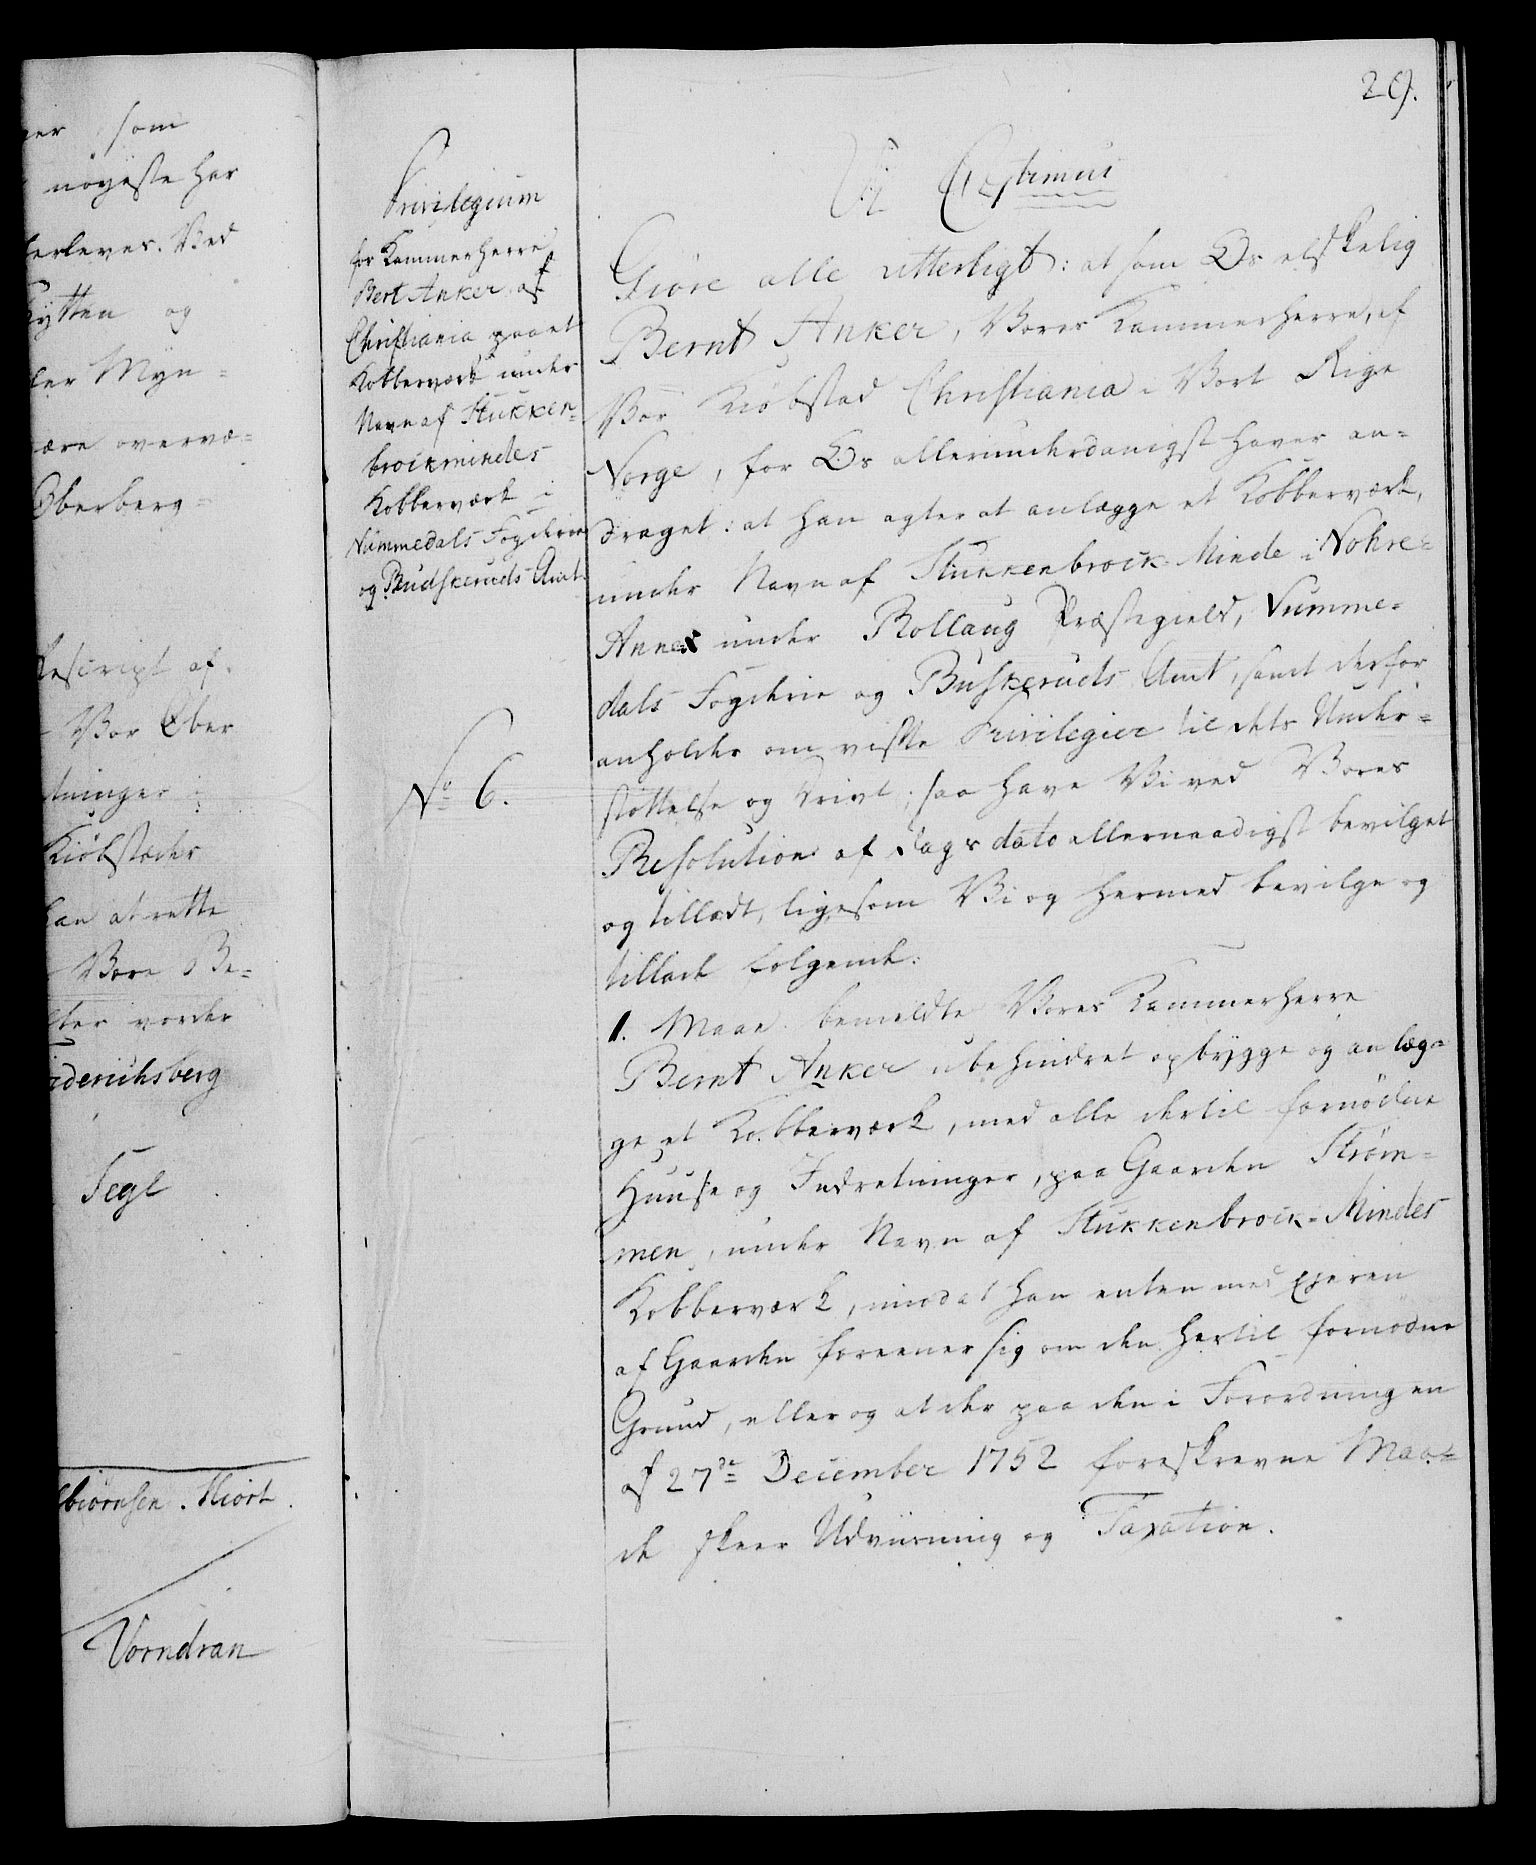 ger som
nöyeste har
erleves. Ved
Hytten og
ler Myn=
være overvæ=
Oberberg=
Rescript af
Vor Ober
tninger i
Kiöbstæder
han at rette
Vore Be=
ter vorder
iderichsberg
Segl
lbiörnsen. Hiort.
Vorndran
29.
Privilegium
for Kammerherre
Bert Anker af
Christiania paa et
Kobberværk under
Navn af Stukken=
brockmindes
Kobberværk i
Nummedals Fogderie
og Budskeruds Amt.
No 6.
Vi Christian
Giöre alle vitterligt: at som Os elskelig
Bernt Anker, Vores Kammerherre, af
Vor Kiöbstad Christiania i Vort Rige
Norge, for Os allerunderdanigst haver an=
draget: at han agter at anlægge et Kobberværk,
under Navn af Stukkenbrock-Minde i Nohre=
Annex under Rollaug Præstegield, Numme=
dals Fogderie og Buskeruds Amt, samt derfor
anholder om visse Privilegier til dets Under=
støttelse og Drivt; saa have Vi ved Vores
Resolution af Dags dato allernaadigst bevilget
og tilladt, ligesom Vi og hermed bevilge og
tillade følgende:
1. Maae bemeldte Vores Kammerherre
Bernt Anker ubehindret opbygge og anlæg=
ge et Kobberværk, med alle dertil fornödne
Huuse og Indretninger, paa Gaarden Ström=
men, under Navn af Stukkenbrock-Mindes
Kobberværk, imod at han enten med Ejeren
af Gaarden foreener sig om den hertil fornödne
Grund, eller og at der paa den i Forordningen
af 27de December 1752 foreskrevne Maa=
de skeer Udviisning og Taxation.